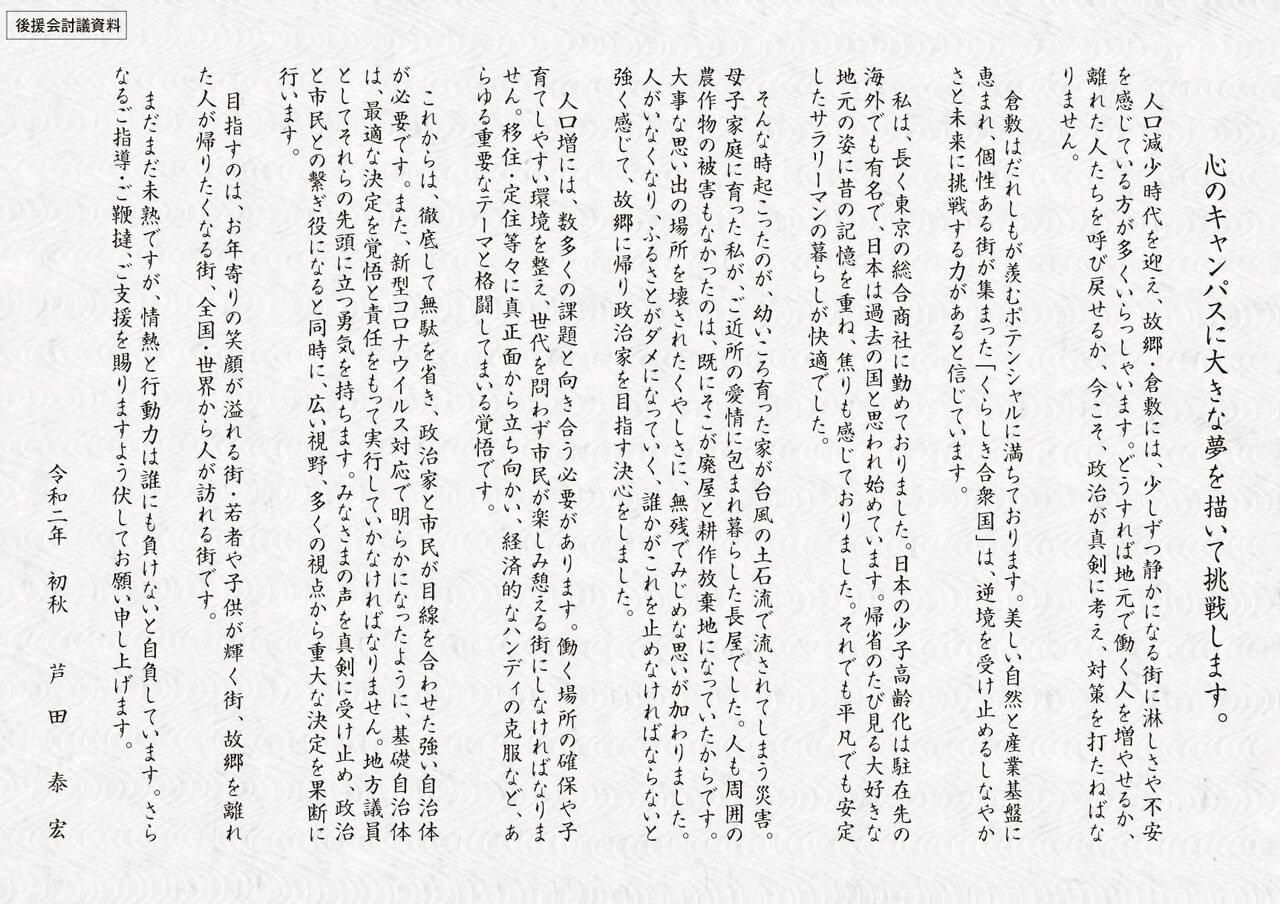 後援会討議資料
心のキャンパスに大きな夢を描いて挑戦します。
人口減少時代を迎え、故郷・倉敷には、少しずつ静かになる街に淋しさや不安
を感じている方が多くいらっしゃいます。どうすれば地元で働く人を増やせるか、
離れた人たちを呼び戻せるか、今こそ、政治が真剣に考え、対策を打たねばな
りません。
倉敷はだれしもが羨むポテンシャルに満ちております。美しい自然と産業基盤に
恵まれ、個性ある街が集まった「くらしき合衆国」は、逆境を受け止めるしなやか
さと未来に挑戦する力があると信じています。
私は、長く東京の総合商社に勤めておりました。日本の少子高齢化は駐在先の
海外でも有名で、日本は過去の国と思われ始めています。帰省のたび見る大好きな
地元の姿に昔の記憶を重ね、焦りも感じておりました。それでも平凡でも安定
したサラリーマンの暮らしが快適でした。
そんな時起こったのが、幼いころ育った家が台風の土石流で流されてしまう災害。
母子家庭に育った私が、ご近所の愛情に包まれ暮らした長屋でした。人も周囲の
農作物の被害もなかったのは、既にそこが廃屋と耕作放棄地になっていたからです。
大事な思い出の場所を壊されたくやしさに、無残でみじめな思いが加わりました。
人がいなくなり ふるさとがダメになっていく、誰かがこれを止めなければならないと
強く感じて、故郷に帰り政治家を目指す決心をしました。
人口増には、数多くの課題と向き合う必要があります。働く場所の確保や子
育てしやすい環境を整え、世代を問わず市民が楽しみ憩える街にしなければなりま
せん。移住・定住等々に真正面から立ち向かい、経済的なハンディの克服など、あ
らゆる重要なテーマと格闘してまいる覚悟です。
これからは、徹底して無駄を省き、政治家と市民が目線を合わせた強い自治体
が必要です。また、新型コロナウイルス対応で明らかになったように、基礎自治体
は、最適な決定を覚悟と責任をもって実行していかなければなりません。地方議員
としてそれらの先頭に立つ勇気を持ちます。みなさまの声を真剣に受け止め、政治
と市民との繋ぎ役になると同時に、広い視野、多くの視点から重大な決定を果断に
行います。
目指すのは、お年寄りの笑顔が溢れる街・若者や子供が輝く街、故郷を離れ
た人が帰りたくなる街、全国・世界から人が訪れる街です。
まだまだ未熟ですが、情熱と行動力は誰にも負けないと自負しています。さら
なるご指導・ご鞭撻、ご支援を賜りますよう伏してお願い申し上げます。
令和二年 初秋 芦田泰宏